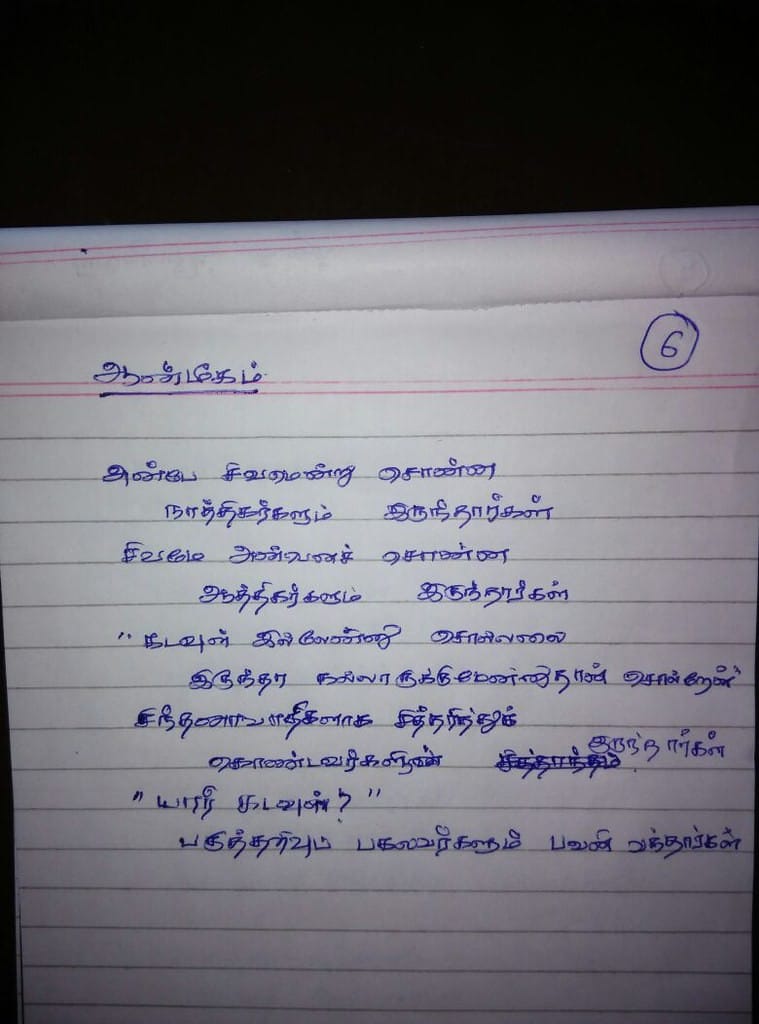 6
ஆன்மீகம்
அன்பே சிவமென்று சொன்ன
நாத்திகர்களும் இருந்தார்கள்
சிவமே அன்பெனச் சொன்ன
ஆத்திகர்களும் இருந்தார்கள்
"கடவுள் இல்லேன்னு சொல்லலை
இருந்தா நல்லாருக்குமேன்னுதான் சொல்றேன்"
சிந்தனாவாதிகளாக சித்தரித்துக்
கொண்டவர்களும் இருந்தார்கள்
"யார் கடவுள்?"
பகுத்தறிவுப் பகலவர்களும் பவனி வந்தார்கள்